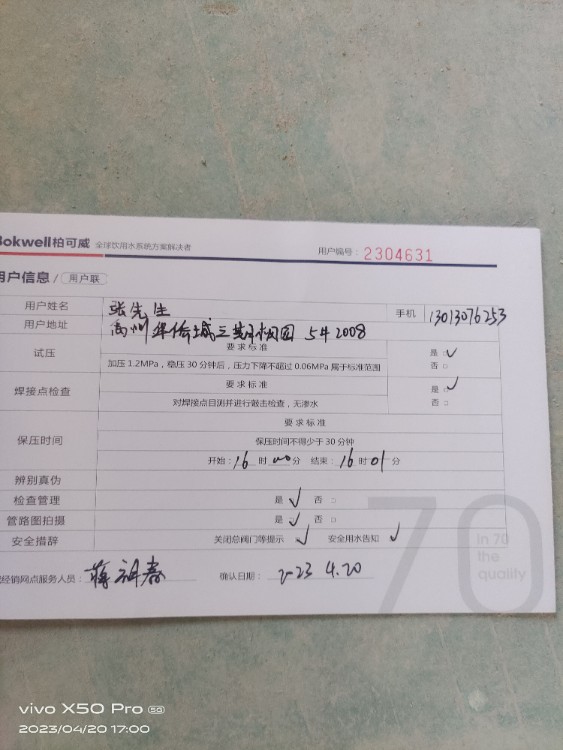 Bokwell柏可威 全球饮用水系统方案解决者 用户编号: 2304631
用户信息 / 用户联
用户姓名 张先生 手机 13013076253
用户地址 华侨城三期 园 5# 2008
试压 要求标准 是 ✓
加压1.2MPa，稳压30分钟后，压力下降不超过0.06MPa属于标准范围 否
焊接点检查 要求标准 是 ✓
对焊接点目测并进行敲击检查，无渗水 否
保压时间 要求标准
保压时间不得少于30分钟
开始: 16 时 00 分 结束: 16 时 01 分
辨别真伪
检查管理 是 ✓ 否
管路图拍摄 是 ✓ 否
安全措辞 关闭总阀门等提示 ✓ 安全用水告知 ✓
经销网点服务人员: 蒋 春 确认日期: 2023 4.20
70
in 70
the
quality
vivo X50 Pro 5G
2023/04/20 17:00